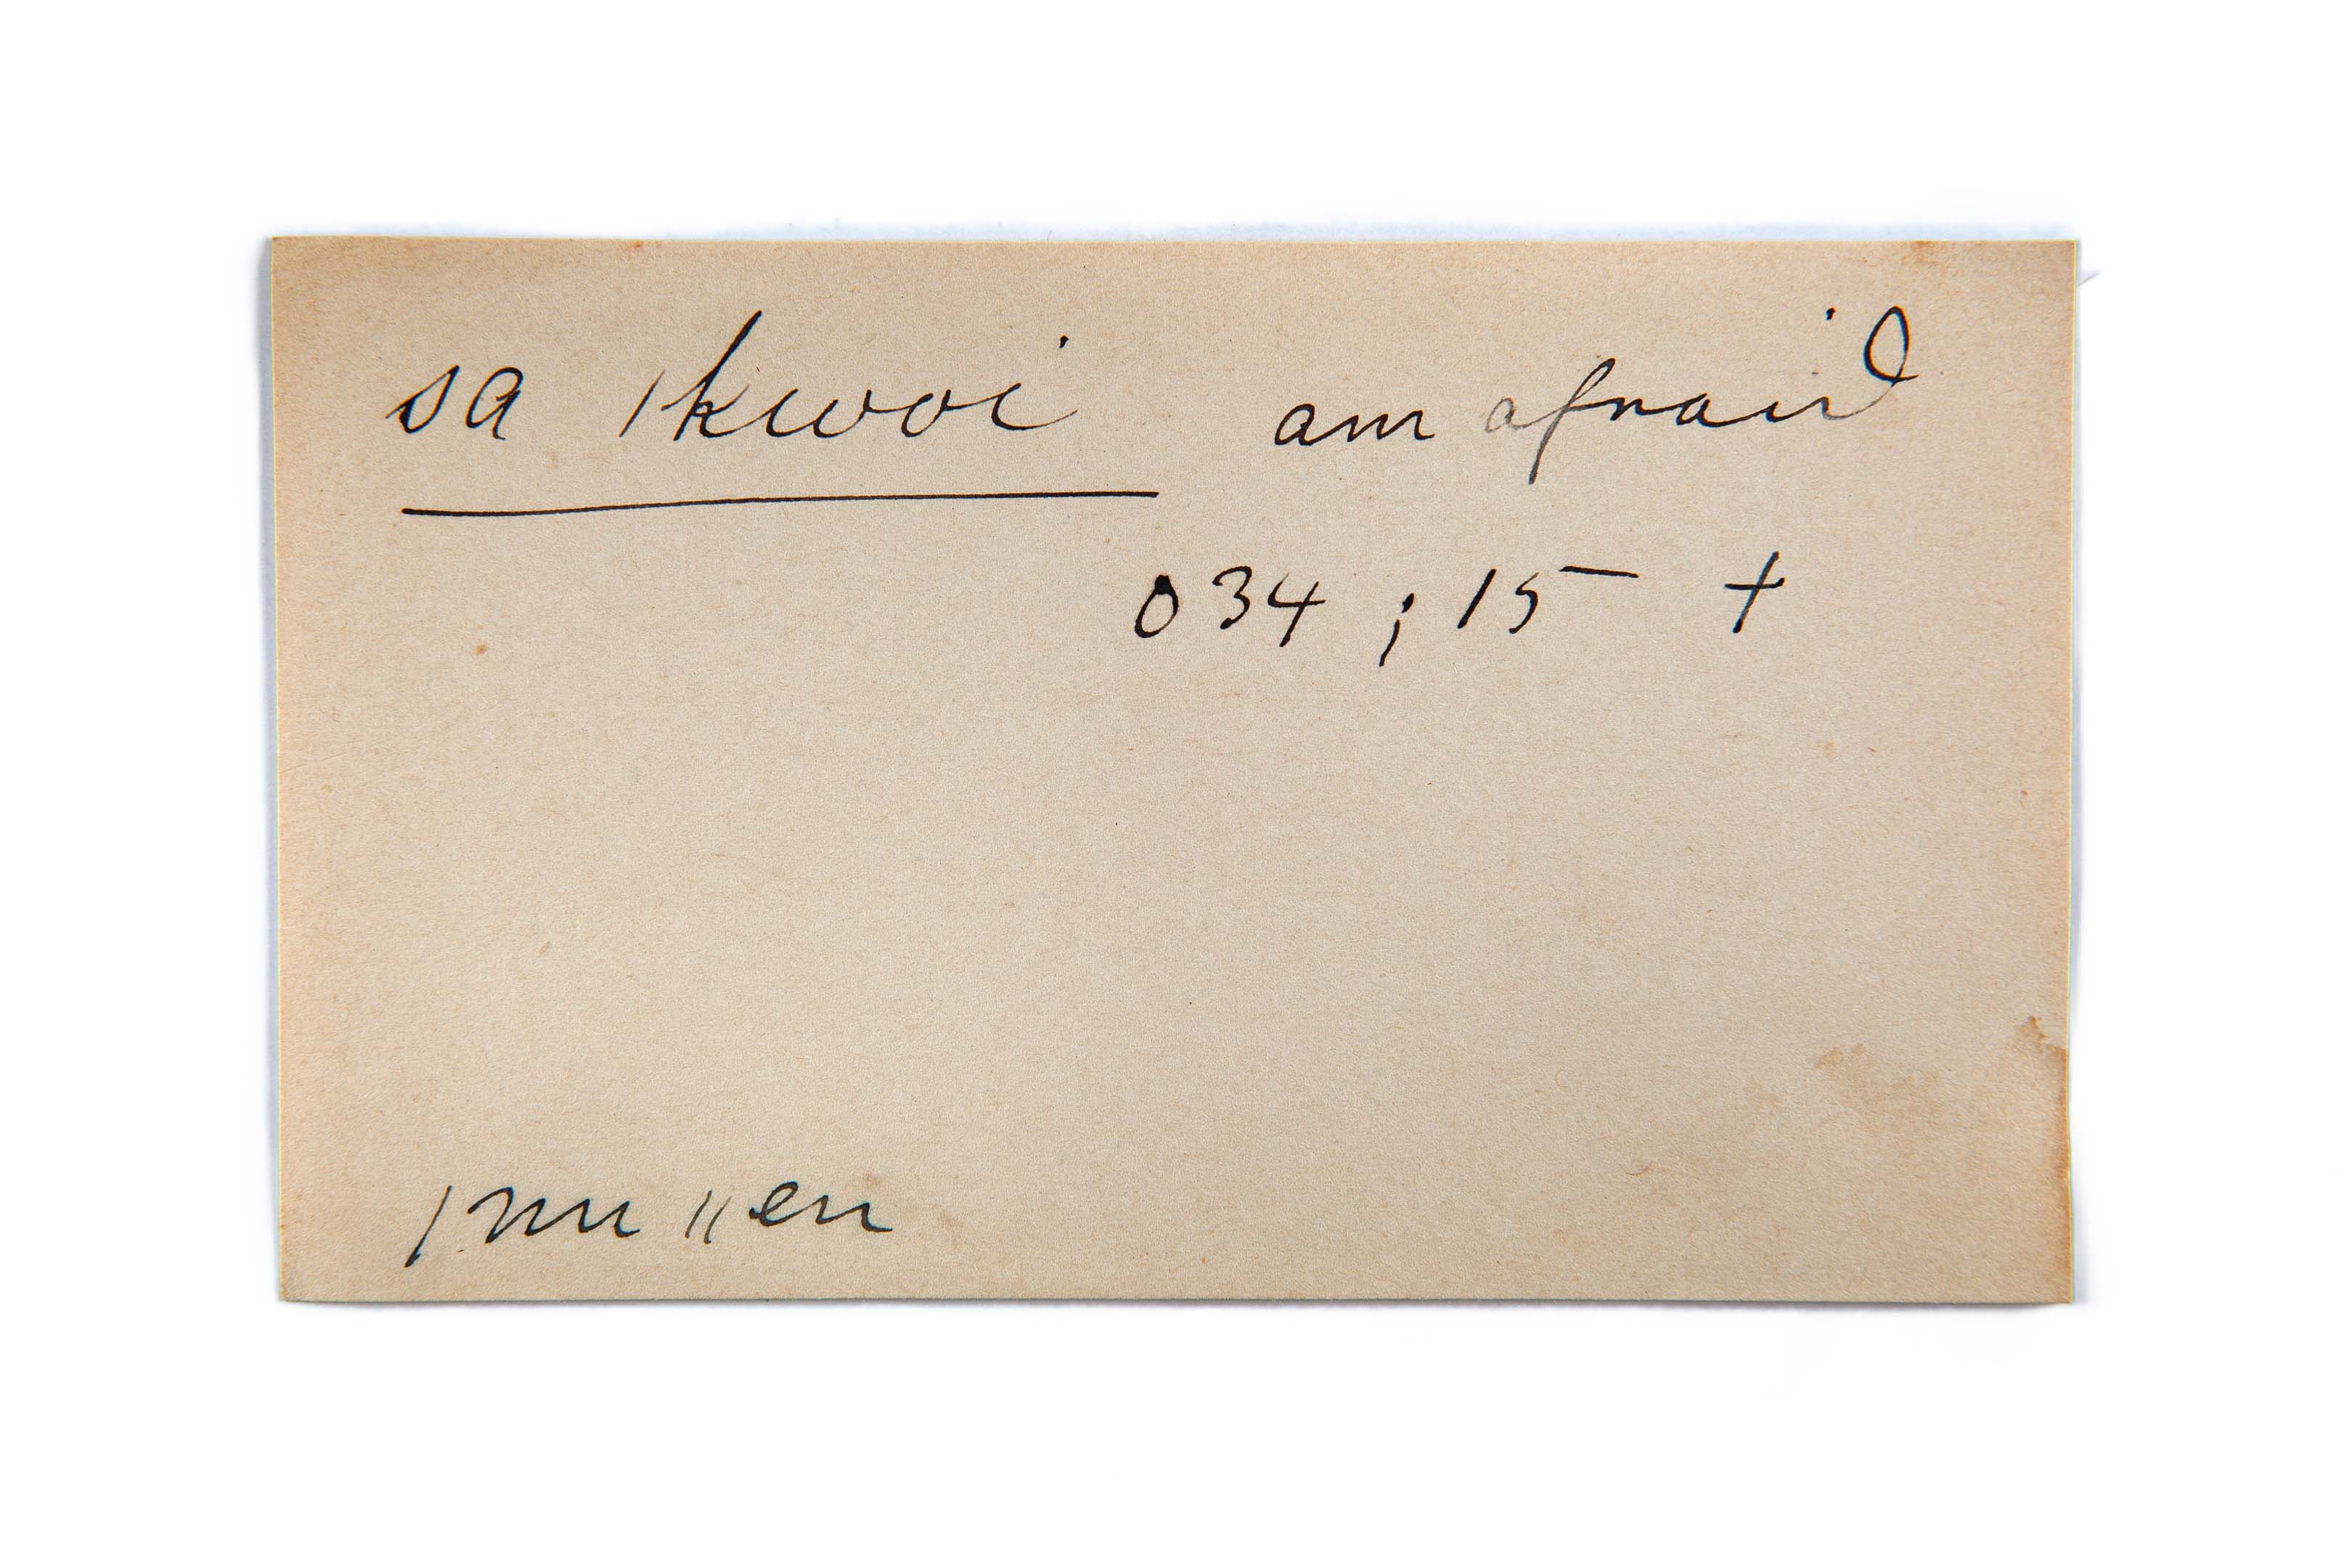 sa |kwoi am afraid
034 ; 15 +
|nu ||en